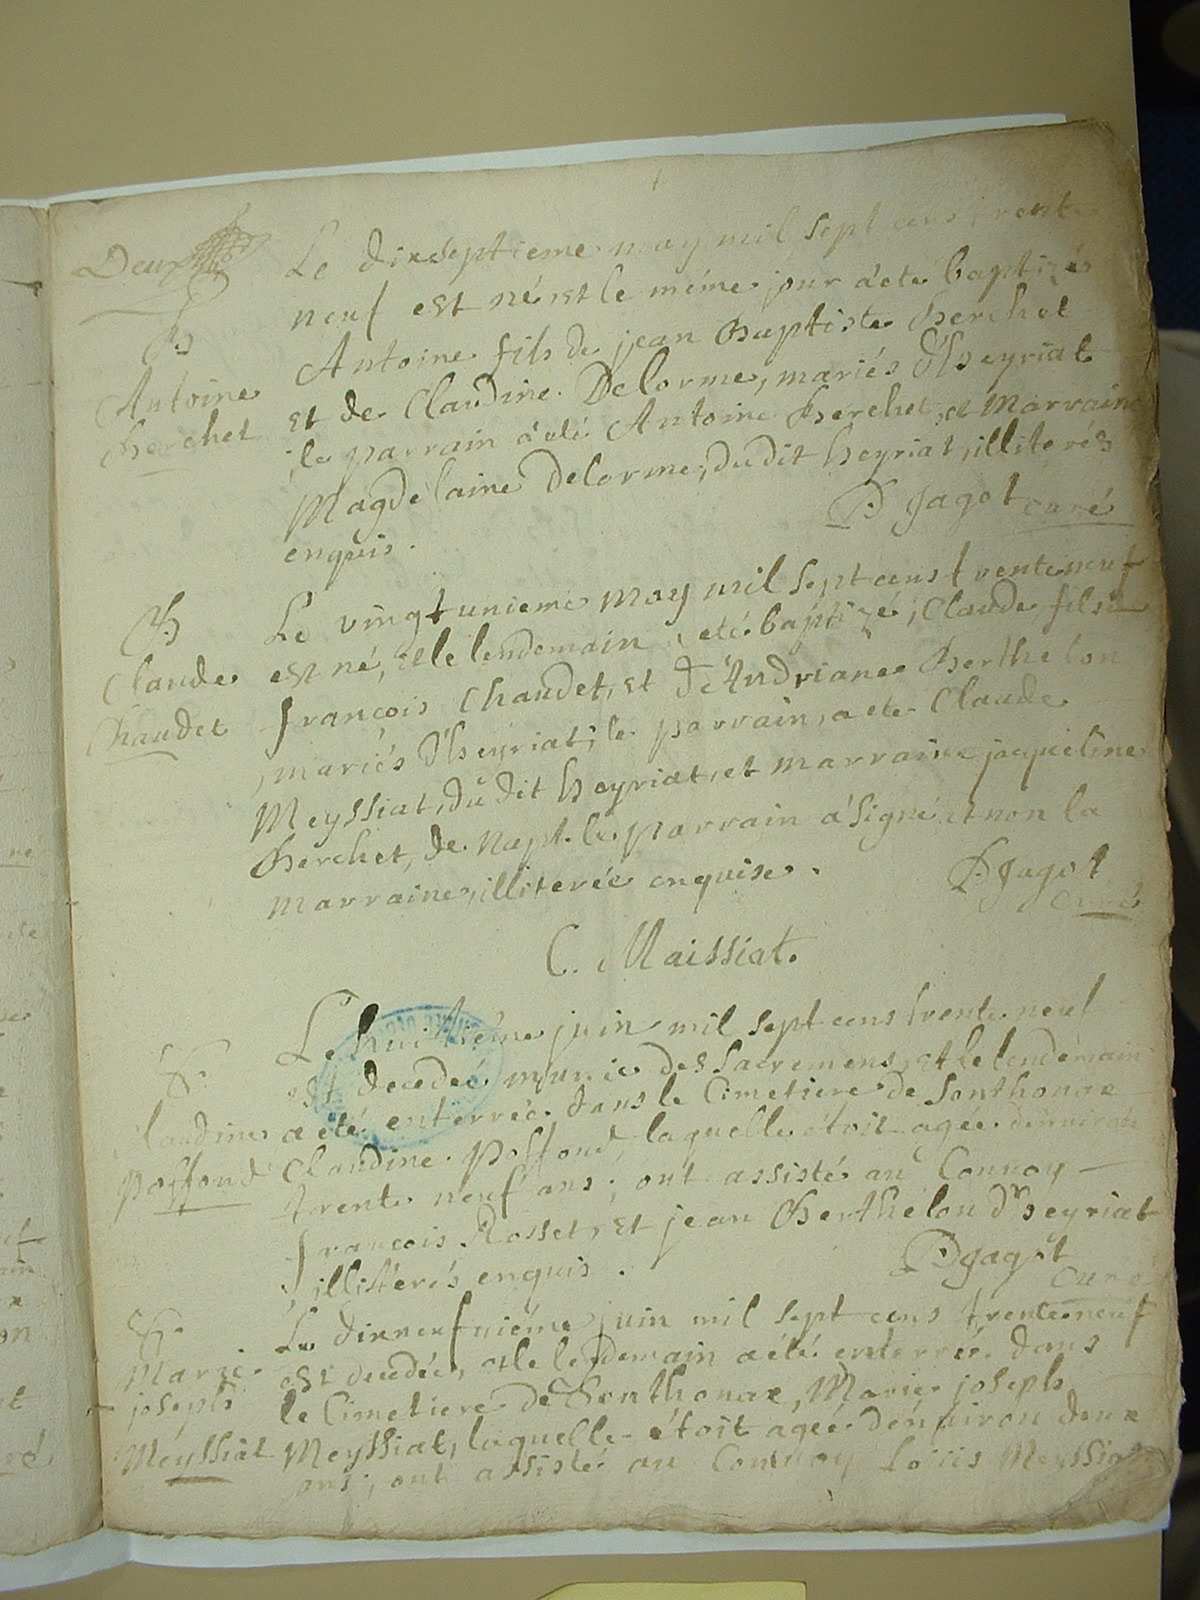 Deux
Le dixseptieme may mil sept cens trente
neuf est né, et le méme jour a été baptizé
B.
Antoine fils de jean Baptiste Berchet
Antoine
et de Claudine Delorme, mariés d'heyriat
Berchet
le parrain a été Antoine Berchet, et Marraine
Magdelaine Delorme, dudit heyriat, illiterés
enquis.
P Jagot curé
B.
Le vingt unieme may mil sept cens trente neuf
Claude
est né, et le lendemain a été baptizé, Claude, fils de
Chaudet
françois Chaudet, et d'Andriane Berthelon
mariés d'heyriat; le parrain, a eté Claude
Meyssiat, du dit heyriat, et marraine jaqueline
Berchet, de Napt. le parrain a signé, et non la
marraine, illiterée enquise.
P Jagot
curé
C. Maissiat.
Le huitiéme juin mil sept cens trente neuf
S.
est decedée munie des Sacremens, et le lendemain
Claudine
a eté enterrée dans le Cimetiere de Sonthonax
Poffond
Claudine Poffond, laquelle étoit agée denviron
trente neuf ans; ont assisté au Convoy
françois Rosset, et jean Berthelon d'heyriat
illiterés enquis.
P Jagot
curé
S.
Le dixneufviéme juin mil sept cens trente neuf
Marie
est decedée, et le lendemain a été enterrée dans
joseph
le Cimetiere de Sonthonax, Marie joseph
Meyssiat
Meyssiat, laquelle étoit agée denviron deux
ans; ont assisté au Convoy Loüis Meyssiat